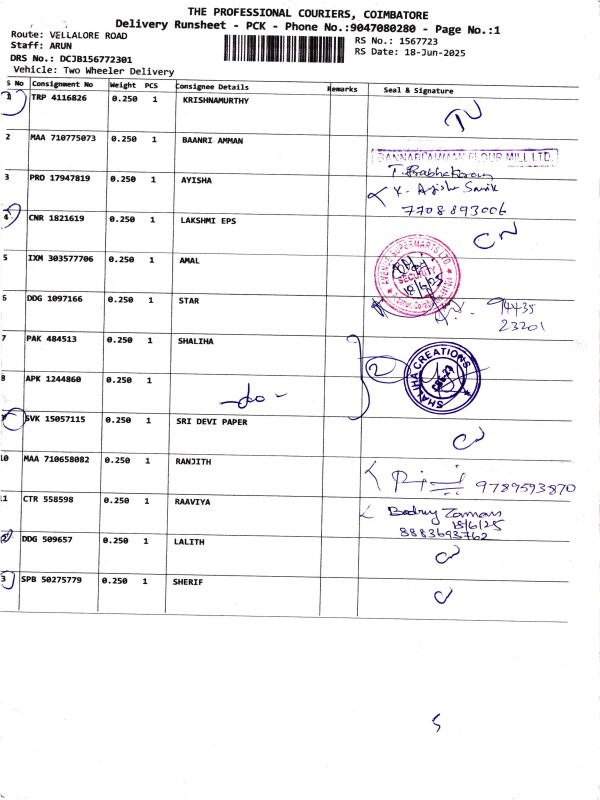 THE PROFESSIONAL COURIERS, COIMBATORE
Delivery Runsheet - PCK - Phone No.:9047080280 - Page No.:1
Route: VELLALORE ROAD
Staff: ARUN
DRS No.: DCJB156772301
Vehicle: Two Wheeler Delivery
RS No.: 1567723
RS Date: 18-Jun-2025
S No Consignment No Weight PCS Consignee Details Remarks Seal & Signature
1 TRP 4116826 0.250 1 KRISHNAMURTHY
2 MAA 710775073 0.250 1 BAANRI AMMAN
BANNARIAMMAN FLOUR MILL LTD.
T. Prabhakaran
3 PRO 17947819 0.250 1 AYISHA
7708893006
4 CNR 1821619 0.250 1 LAKSHMI EPS CN
5 IXM 303577706 0.250 1 AMAL
AVENUE SUPERMARTS LTD
SECURITY
18/6/25
6 DDG 1097166 0.250 1 STAR
94435
23201
7 PAK 484513 0.250 1 SHALIHA 2
SHALIHA CREATIONS
8 APK 1244860 0.250 1 -do-
9 SVK 15057115 0.250 1 SRI DEVI PAPER
10 MAA 710658082 0.250 1 RANJITH 9789593870
11 CTR 558598 0.250 1 RAAVIYA Badry Zaman
18/6/25
8883693762
2 DDG 509657 0.250 1 LALITH
3 SPB 50275779 0.250 1 SHERIF